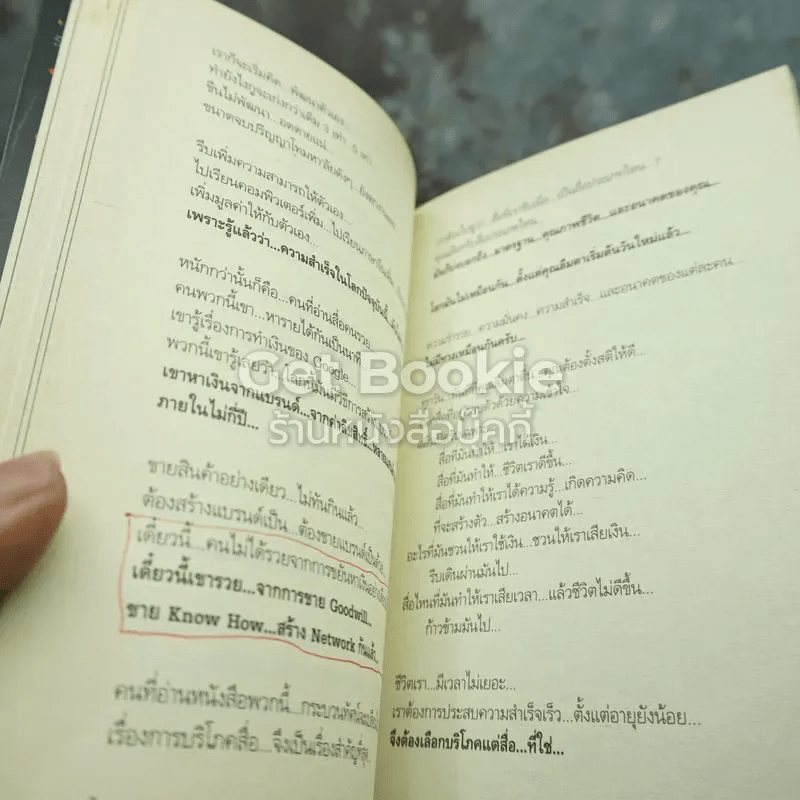 เราก็จะเริ่มคิด...พัฒนาตัวเอง...
ทำยังไงถูจะเก่งกว่าเดิม 3 เท่า
ขืนไม่พัฒนา...อดตายแน่...
ขนาดจบปริญญาโทมหาลัยดังๆ
รีบเพิ่มความสามารถให้ตัวเอง...
ไปเรียนคอมพิวเตอร์เพิ่ม...ไปเรียนภาษา
เพิ่มมูลค่าให้กับตัวเอง...
เพราะรู้แล้วว่า...ความสำเร็จในโลกปัจจุบันนี้
หนักกว่านั้นก็คือ...คนที่อ่านสื่อคนรวย...
คนพวกนี้เขา...หารายได้กันเป็นนาที
เขารู้เรื่องการทำเงินของ Google...
พวกนี้เขารู้เลยว่า...โลกนี้มันมีวิธีการสร้าง
เขาหาเงินจากแบรนด์...จากค่าลิขสิทธิ์
ภายในไม่กี่ปี...
ขายสินค้าอย่างเดียว...ไม่ทันกินแล้ว...
ต้องสร้างแบรนด์เป็น...ต้องขายแบรนด์เป็นด้วย
เดี๋ยวนี้...คนไม่ได้รวยจากการขยันหาเงินอย่าง
เดี๋ยวนี้เขารวย...จากการขาย Goodwill...
ขาย Know How...สร้าง Network กันแล้ว...
คนที่อ่านหนังสือพวกนี้...กระบวนทัศน์จะ
เรื่องการบริโภคสื่อ...จึงเป็นเรื่องสำคัญที่สุด
เป็นสื่อประเภทไหน
มาตรฐาน...คุณภาพชีวิต...และอนาคตของคุณ...
โลกมันไม่เหมือนกัน...ตั้งแต่คุณลืมตาเริ่มต้นวันใหม่แล้ว...
ความร่ำรวย ความมั่นคง...ความสำเร็จ...และอนาคตของแต่ละคน...
ไม่มีทางเหมือนกันครับ...
ต้องตั้งสติให้ดี...
ด้วยความเข้าใจ...
สื่อที่มันทำให้...เราได้เงิน...
สื่อที่มันทำให้...ชีวิตเราดีขึ้น...
สื่อที่มันทำให้เราได้ความรู้...เกิดความคิด...
ที่จะสร้างตัว...สร้างอนาคตได้...
อะไรที่มันชวนให้เราใช้เงิน...ชวนให้เราเสียเงิน...
รีบเดินผ่านมันไป...
สื่อไหนที่มันทำให้เราเสียเวลา...แล้วชีวิตไม่ดีขึ้น...
ก้าวข้ามมันไป...
ชีวิตเรา...มีเวลาไม่เยอะ...
เราต้องการประสบความสำเร็จเร็ว...ตั้งแต่อายุยังน้อย...
จึงต้องเลือกบริโภคแต่สื่อ...ที่ใช่...
Get Bookie
ร้านหนังสือบุคกี้